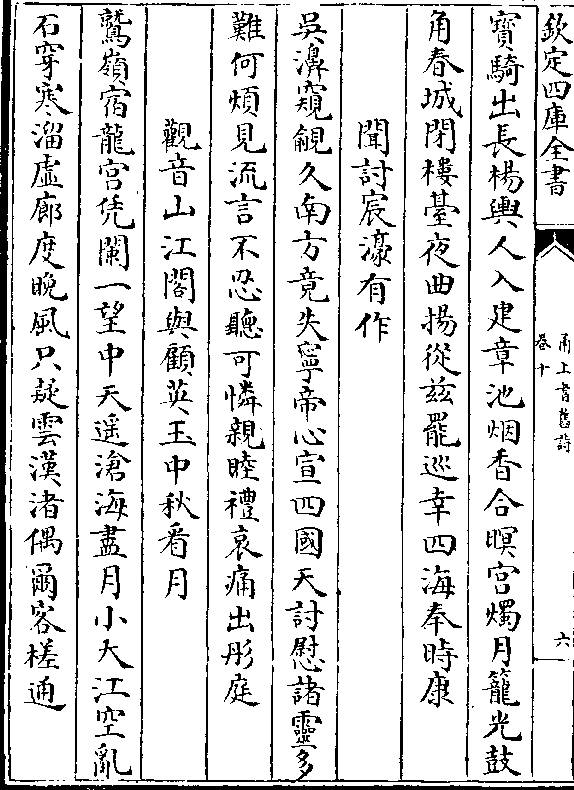 欽定四庫全書
甬上耆舊詩
卷十
六
寳騎出長楊輿人入建章池烟香合暝宫燭月籠光鼓
角春城閉樓臺夜曲揚從兹罷巡幸四海奉時康
聞討宸濠有作
吳濞窺覦久南方竟失寧帝心宣四國天討慰諸靈多
難何煩見流言不忍聽可憐親睦禮哀痛出彤庭
觀音山江閣與顧英玉中秋看月
鷲嶺宿龍宫凭闌一望中天遥滄海盡月小大江空亂
石穿寒溜虛廊度晚風只疑雲漢渚偶爾客槎通